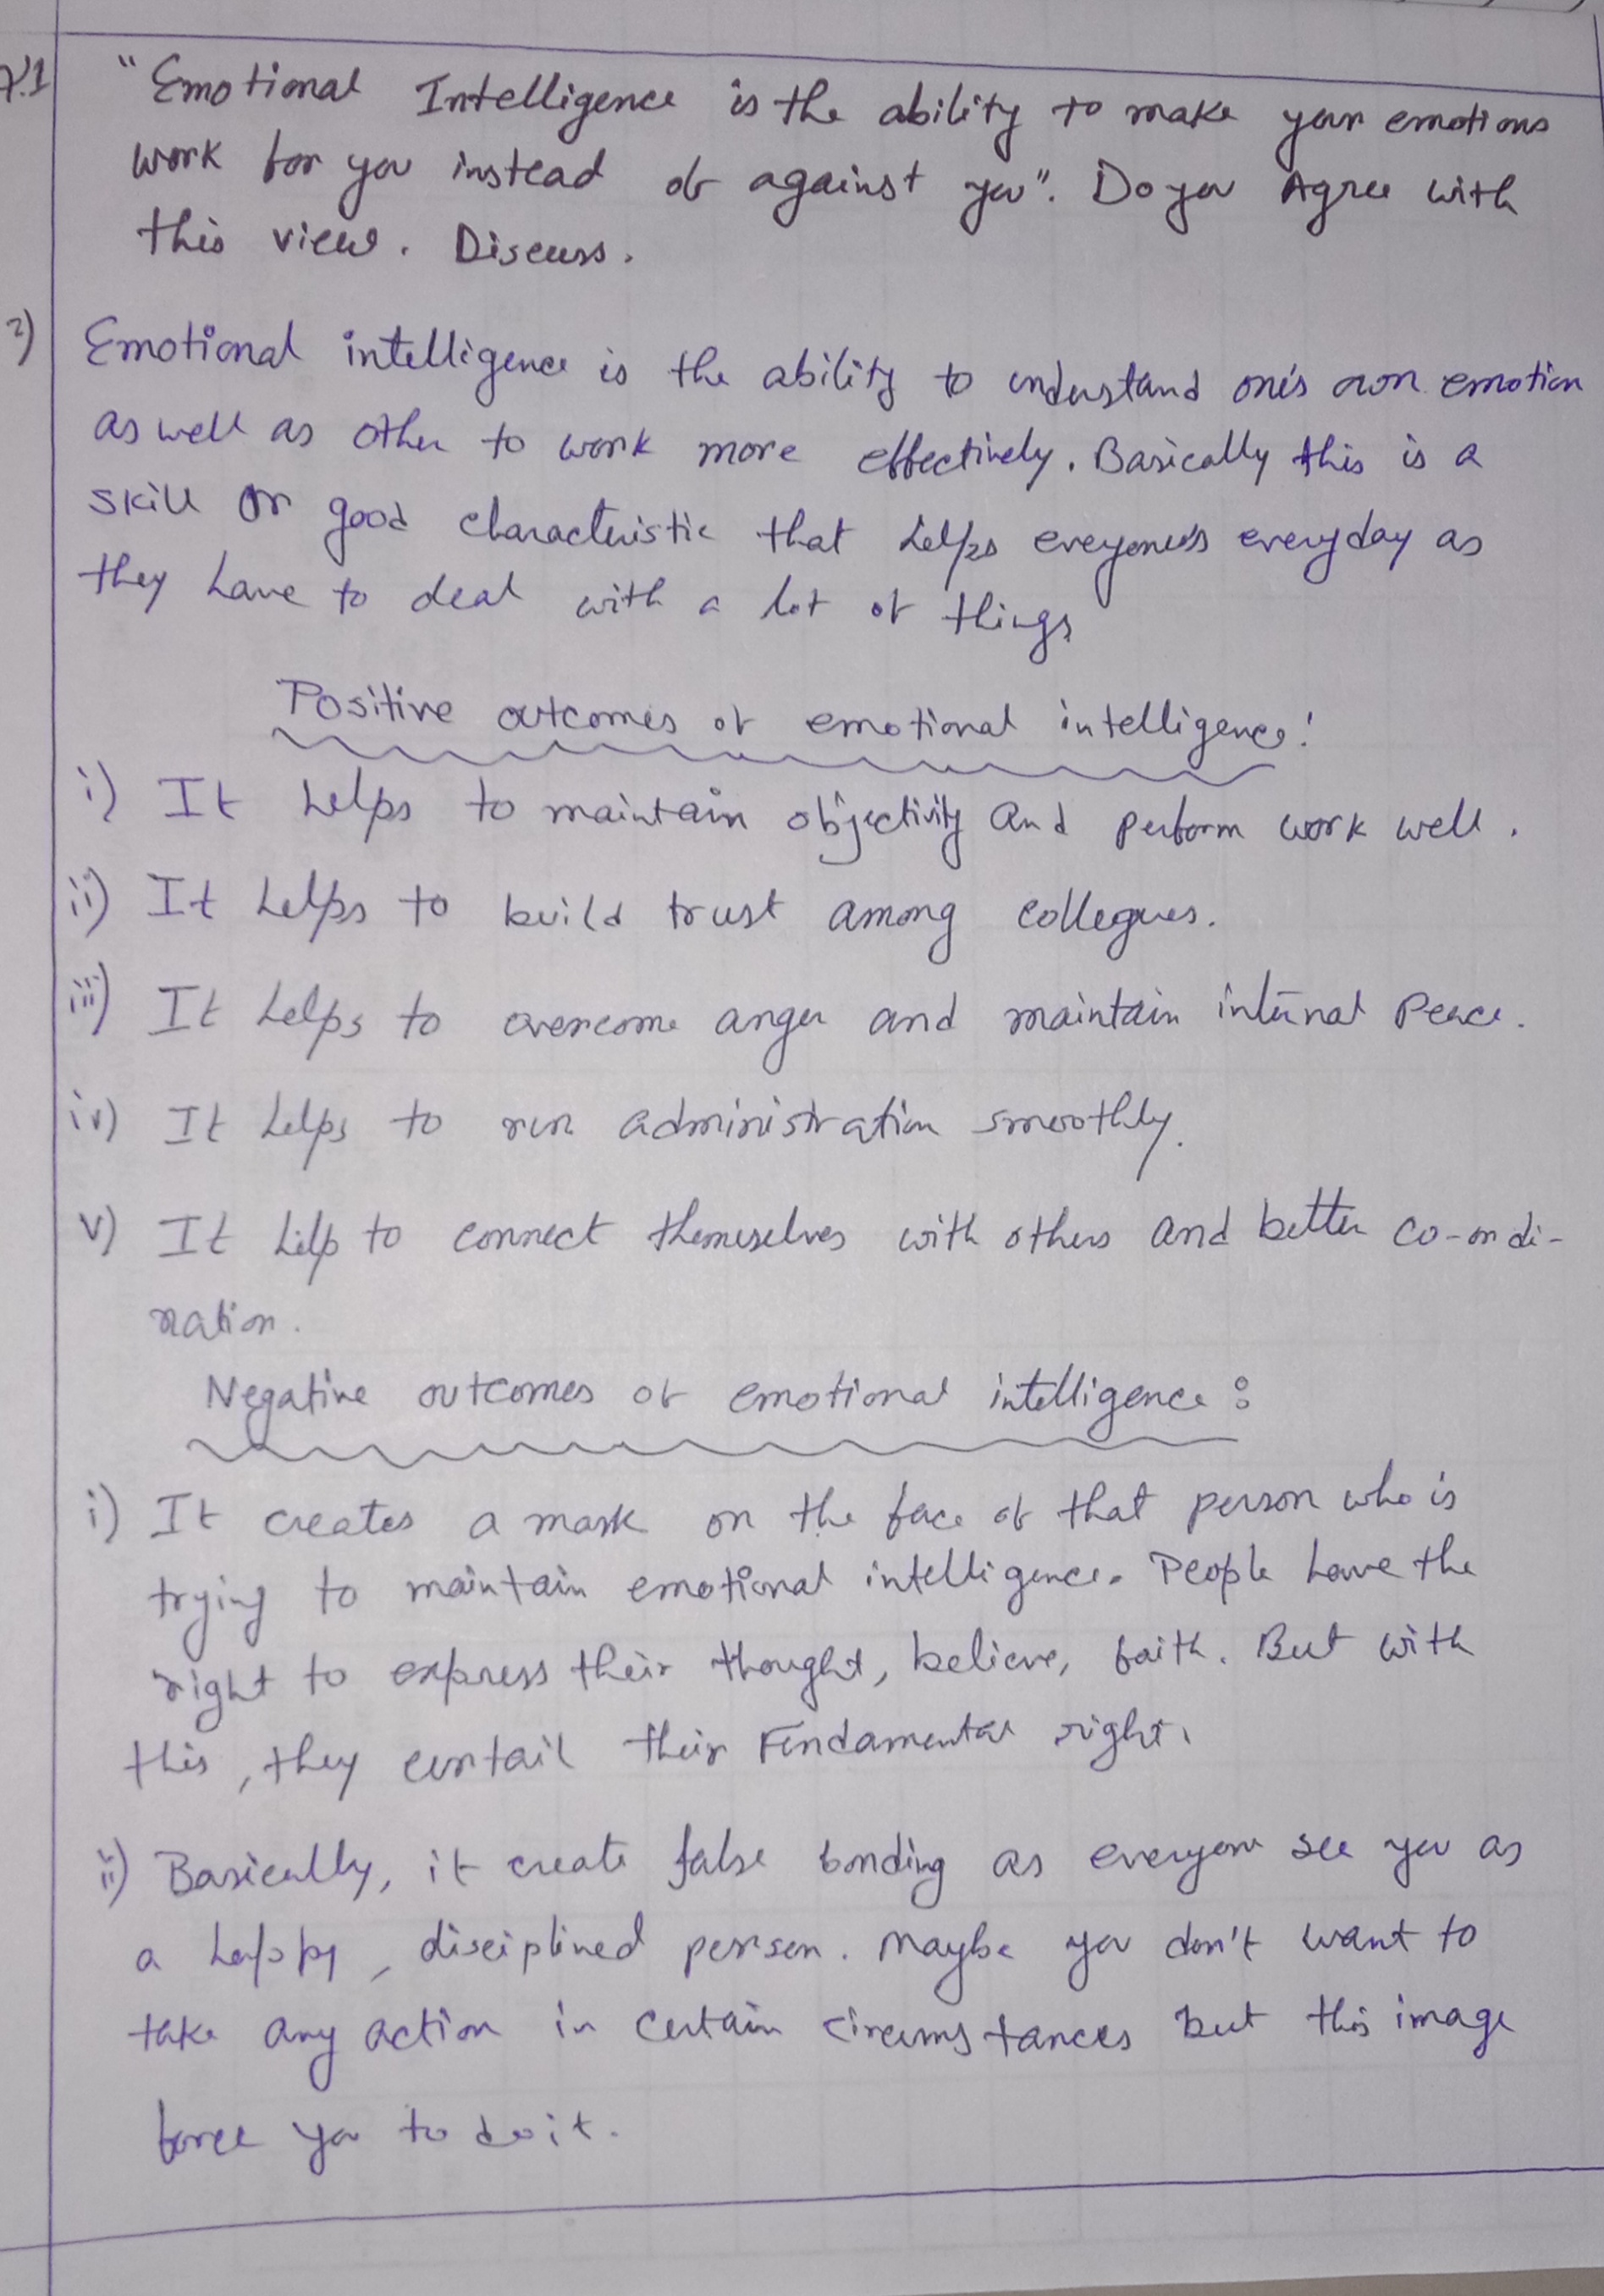 "Emotional Intelligence is the ability to make your emotions
work for you instead of against you". Do you Agree with
this view. Discuss.
Emotional intelligence is the ability to understand one's own emotion
as well as other to work more effectively. Basically this is a
skill or good characteristic that helps everyone's everyday as
they have to deal with a lot of things
Positive outcomes of emotional intelligence:
i) It helps to maintain objectivity and perform work well.
ii) It helps to build trust among collegues.
iii) It helps to overcome anger and maintain internal Peace.
iv) It helps to run administration smoothly.
v) It help to connect themeselves with others and better co-ordi-
nation.
Negative outcomes of emotional intelligence:
i) It creates a mask on the face of that person who is
trying to maintain emotional intelligence. People have the
right to express their thought, believe, faith. But with
this, they curtail their Fundamental right.
ii) Basically, it create false bonding as everyone see you as
a happy, disciplined person. Maybe you don't want to
take any action in certain circumstances but this image
force you to do it.